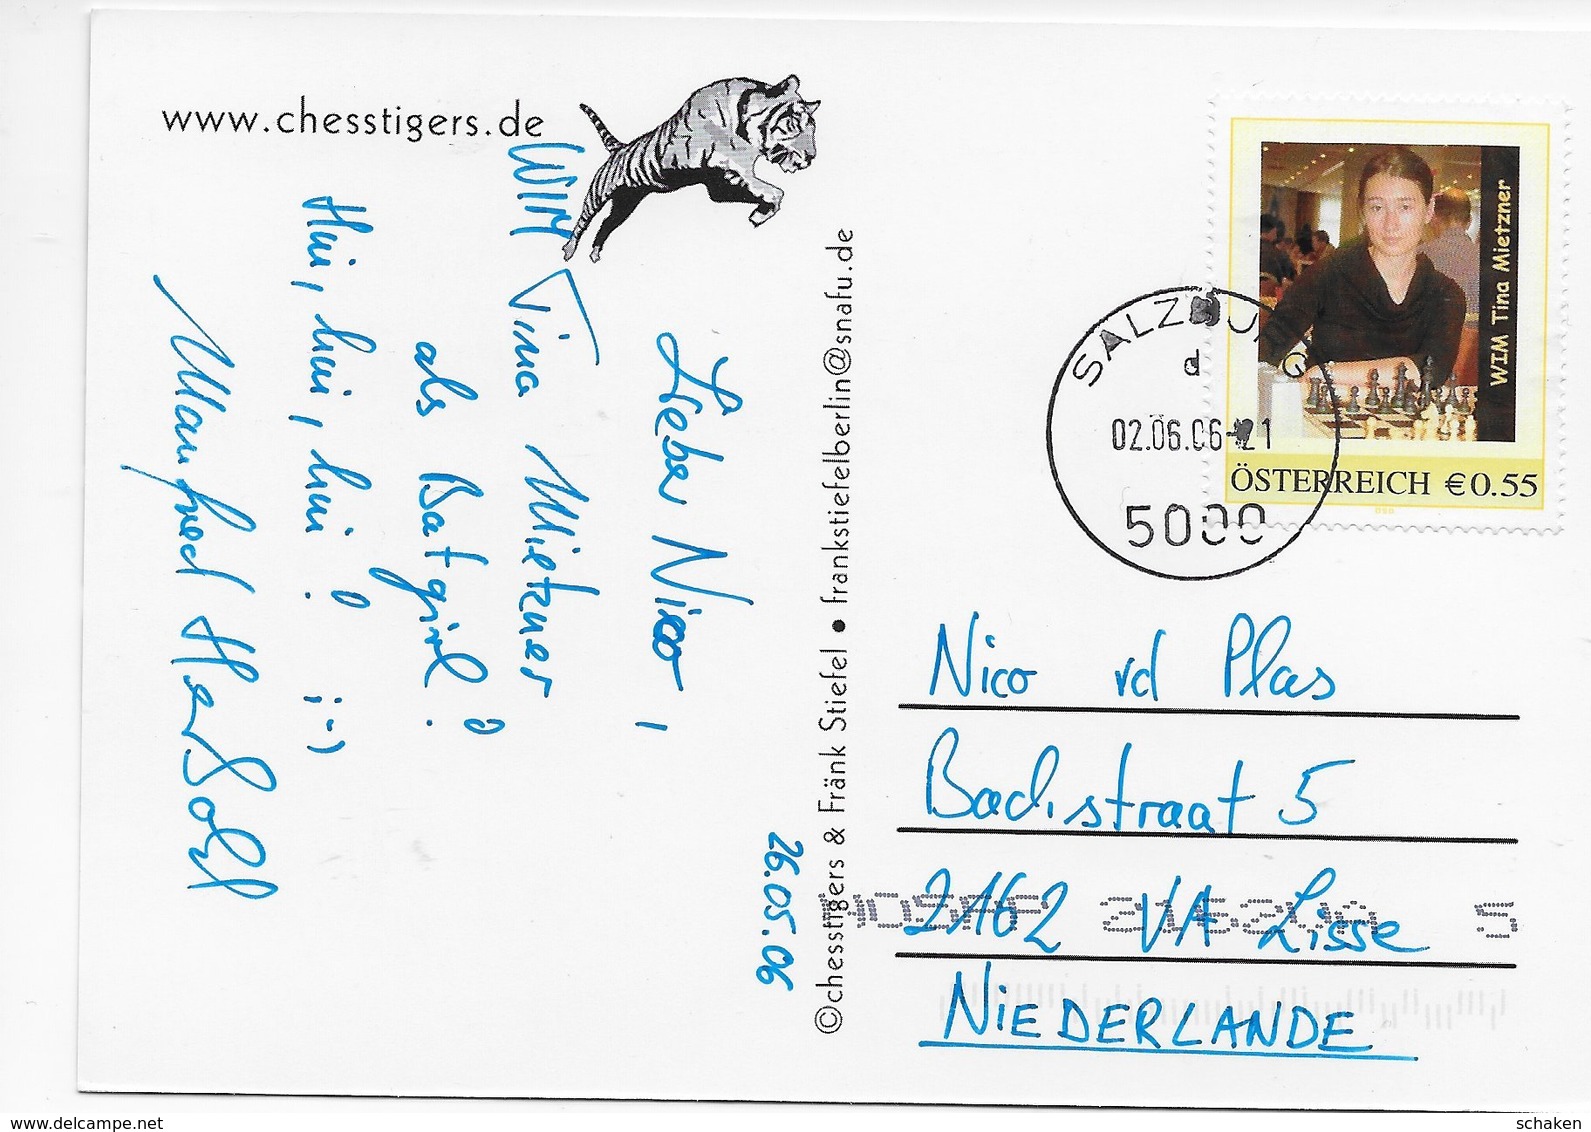 www.chesstigers.de
26.05.06
Lieber Nico,
WIM Tina Mietzner
als Batgirl?
Hui, hui, hui! ;-)
Manfred Herbold
©chesstigers & Fränk Stiefel ● frankstiefelberlin@snafu.de
WIM Tina Mietzner
ÖSTERREICH €0.55
SALZBURG
d
02.06.06-21
5000
Nico vd Plas
Bachstraat 5
2162 VA Lisse
NIEDERLANDE
5
www.delcampe.net
schaken